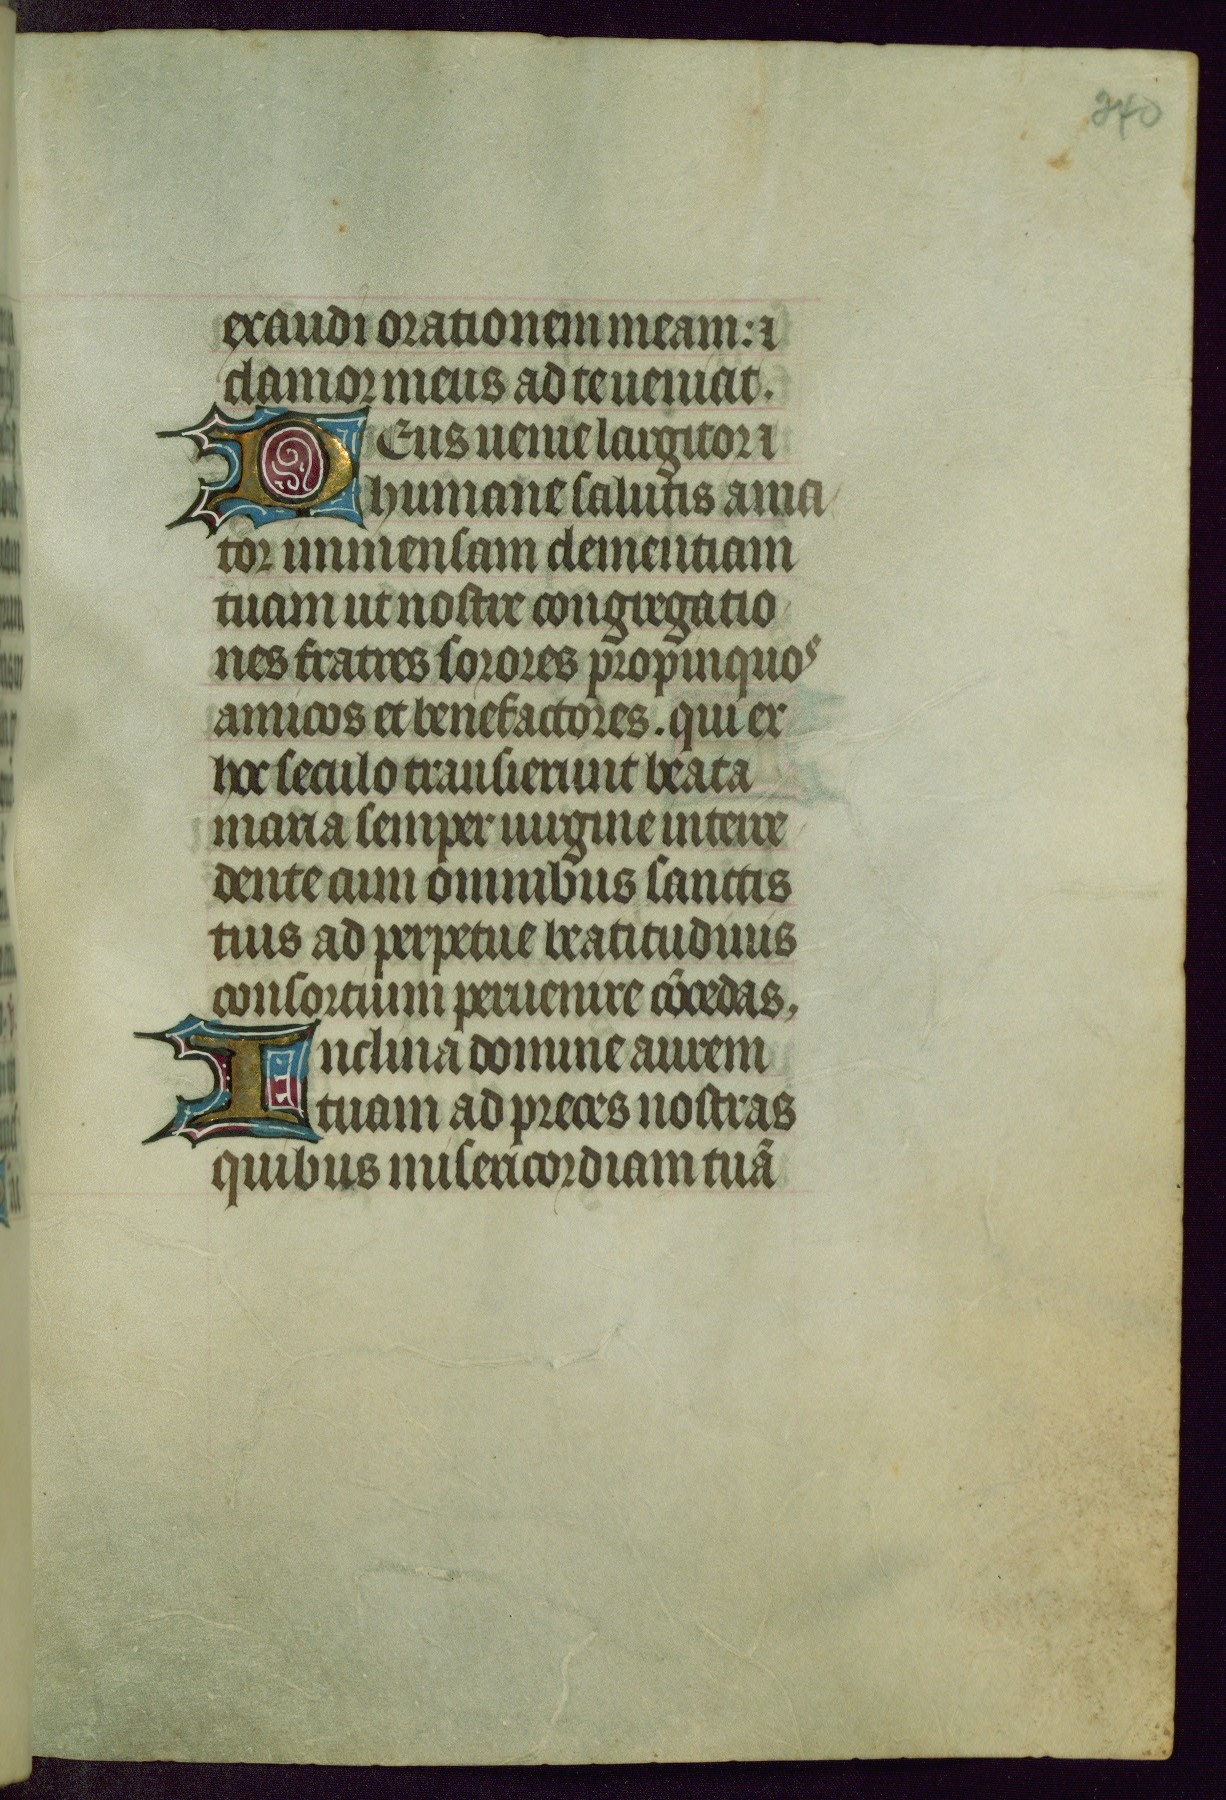 270
exaudi orationem meam: ⁊
clamor meus ad te ueniat.
DEus uenie largitor ⁊
humane salutis ama
tor immensam clementiam
tuam ut nostre congregatio
nes fratres sorores propinquos
amicos et benefactores. qui ex
hoc seculo transierunt beata
maria semper uirgine interce
dente cum omnibus sanctis
tuis ad perpetue beatitudinis
consortium peruenire cōcedas.
Inclina domine aurem
tuam ad preces nostras
quibus misericordiam tuā